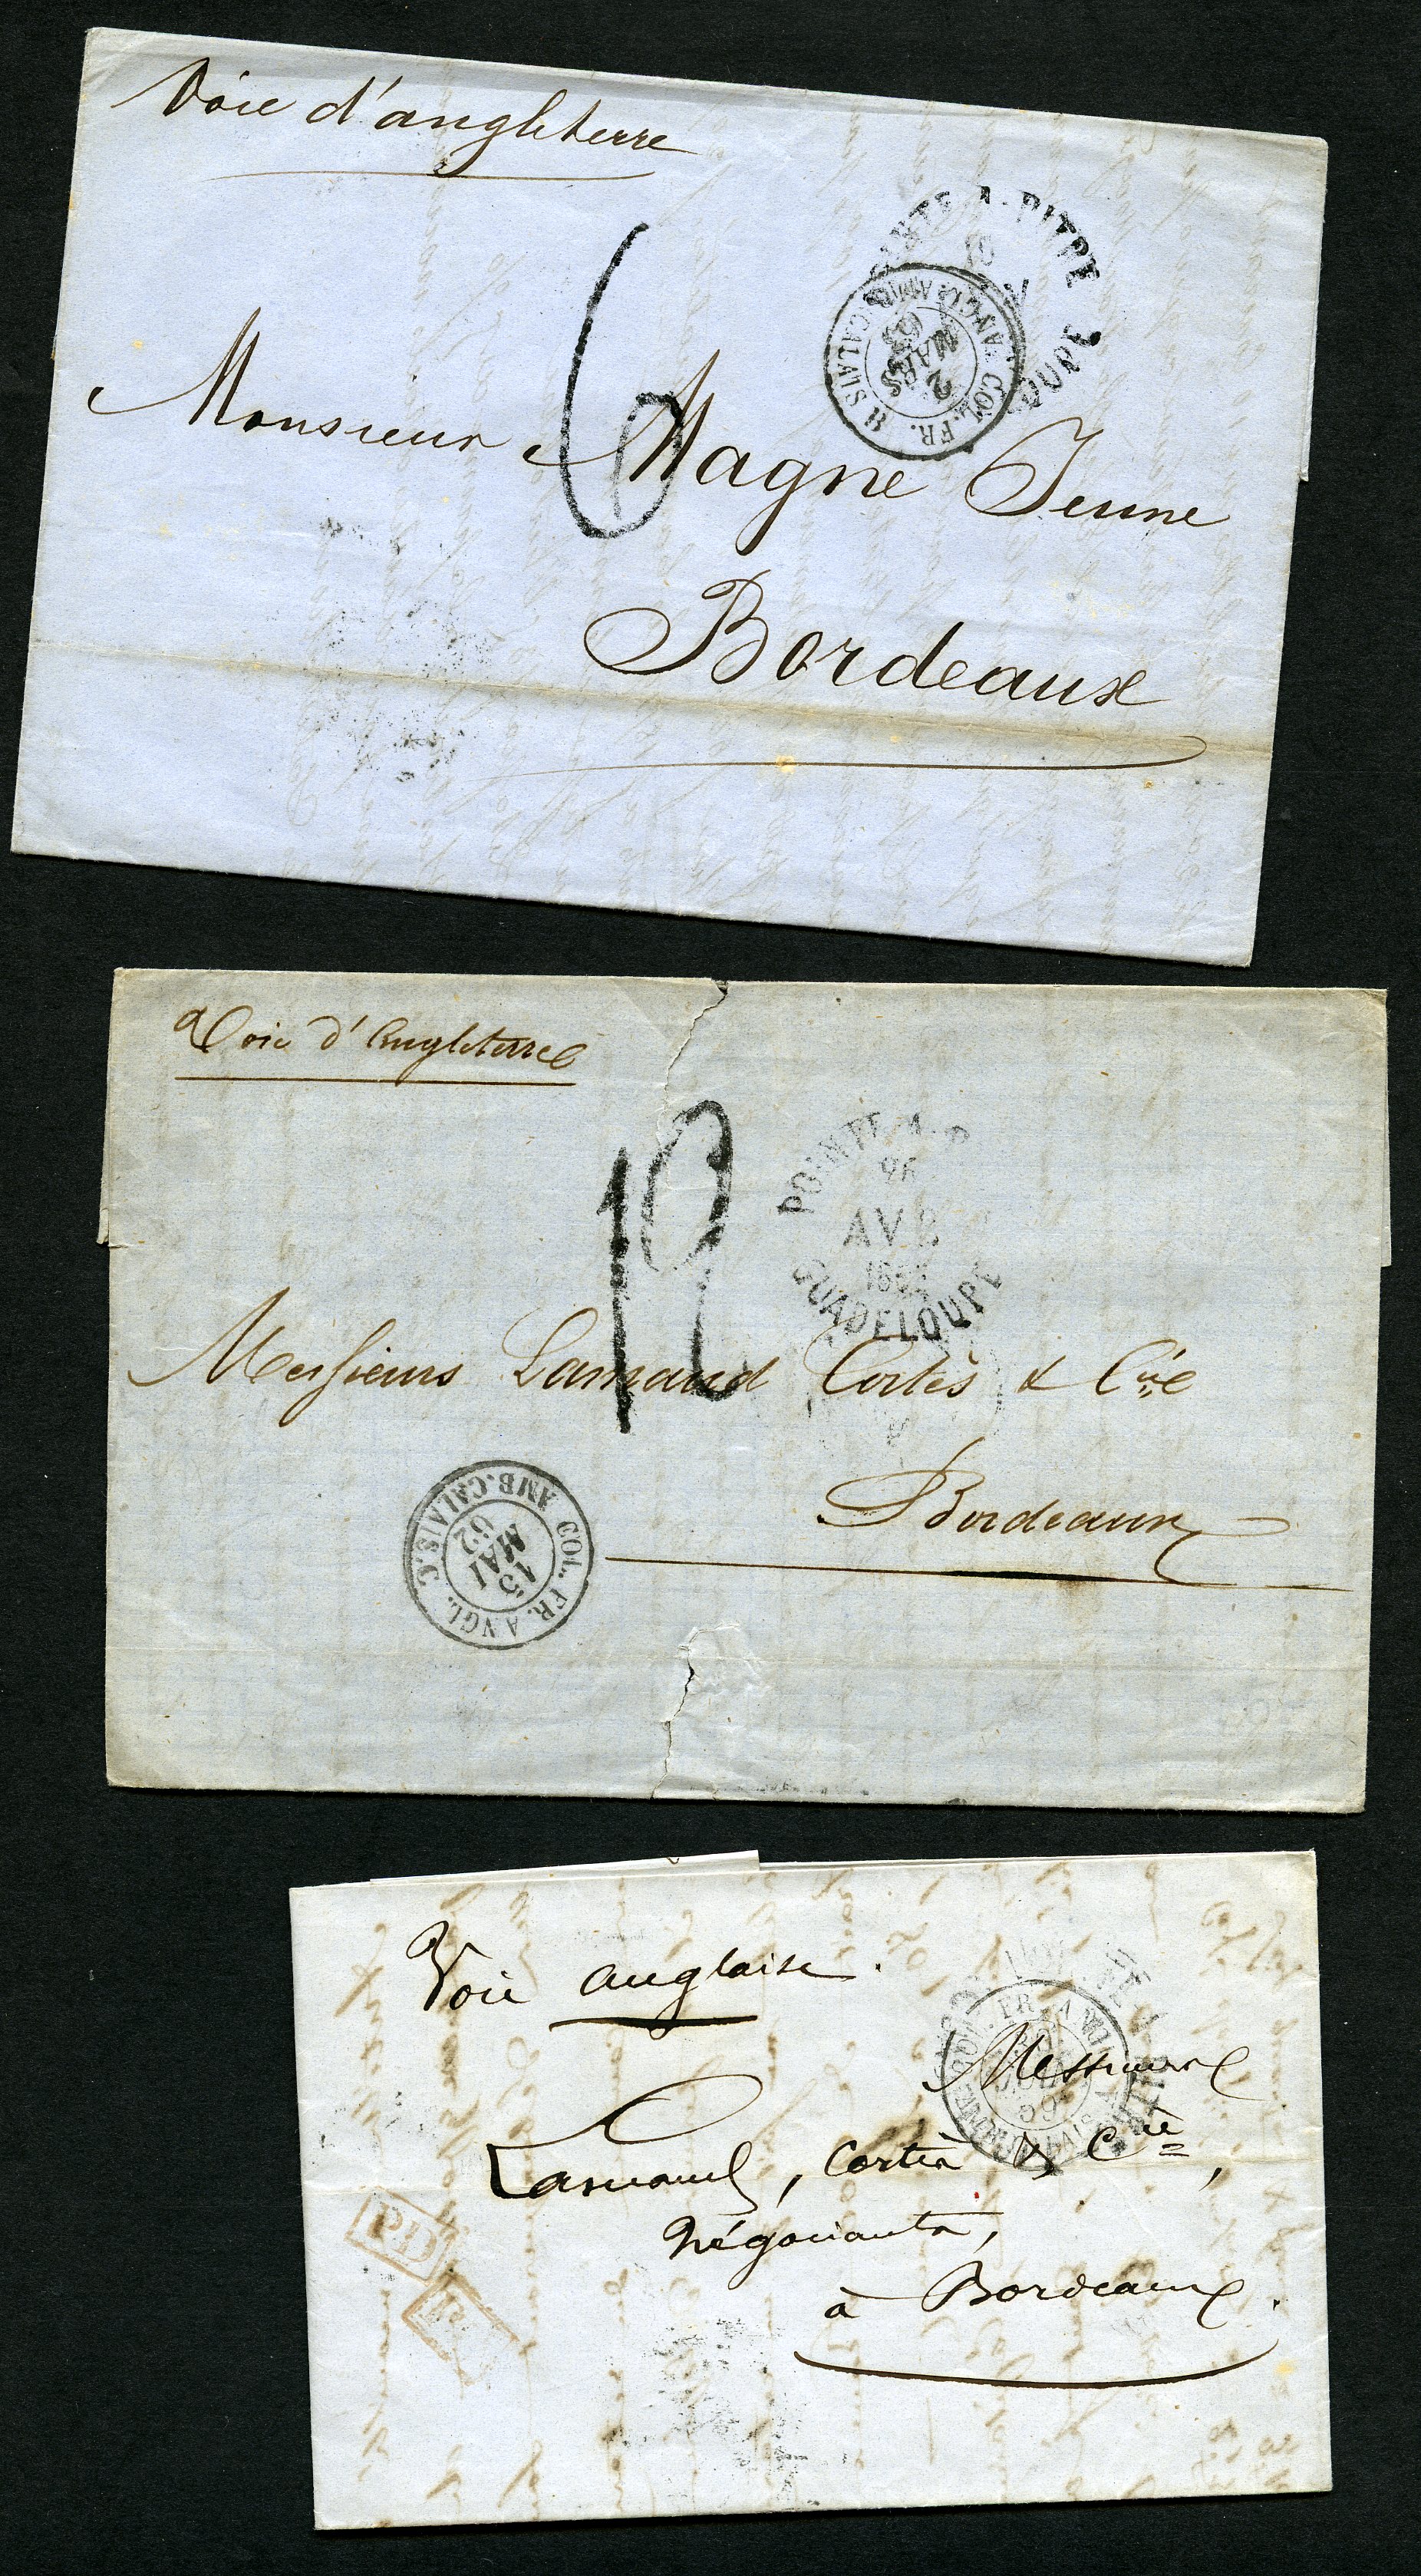 Voie d'angleterre
POINTE-A-PITRE
COL. FR. ANGL. AMB. CALAIS
2
MARS
6
Monsieur Magne Jeune
Bordeaux
Voie d'Angleterre
12
POINTE-A-P
26
AVR
1862
GUADELOUPE
Messieurs Lamaud Cortès & Cie
COL. FR. ANGL. AMB. CALAIS. C
15
MAI
62
Bordeaux
Voie anglaise.
COL. FR. ANGL.
Messieurs
Lamaud, Cortès & Cie,
Négociants,
PD
à Bordeaux.